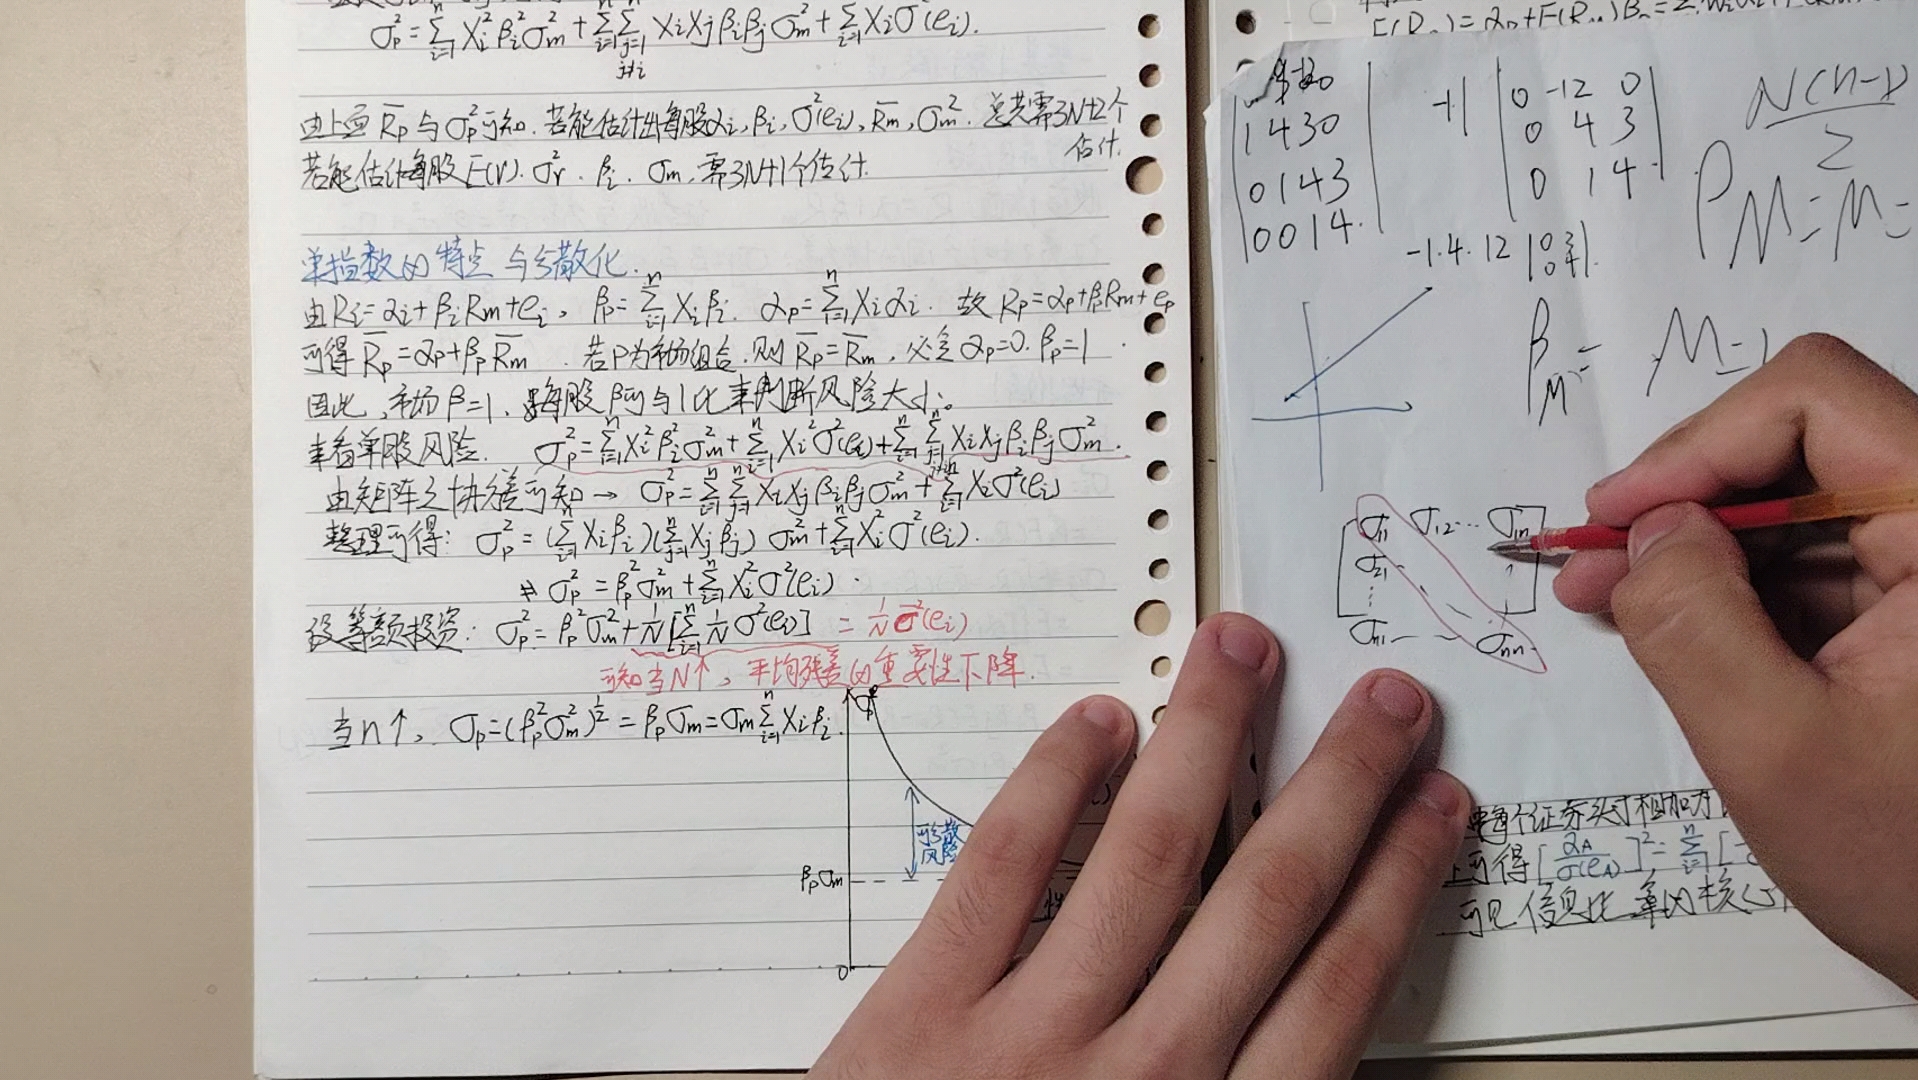 σp² = Σ(i=1→n) Xi²βi²σm² + Σ(i=1→n)Σ(j=1→n, j≠i) XiXjβiβjσm² + Σ(i=1→n) Xiσ²(ei).
由上面 R̄p 与 σp² 可知. 若能估计出每股αi, βi, σ²(ei), R̄m, σm². 总共需3N+2个估计.
若能估计每股E(r). σr². βi. σm, 需3N+1个估计.
单指数的特点与分散化.
由Ri=αi+βiRm+ei, βp=Σ(i=1→n) Xiβi. αp=Σ(i=1→n) Xiαi. 故 Rp=αp+βpRm+ep
可得 R̄p=αp+βpR̄m. 若P为市场组合. 则 R̄p=R̄m, 必定 αp=0. βp=1.
因此, 市场β=1, 每股β可与1比来判断风险大小。
来看单股风险. σp²=Σ(i=1→n) Xi²βi²σm²+Σ(i=1→n) Xi²σ²(ei)+Σ(i=1→n)Σ(j=1→n, j≠i) XiXjβiβjσm².
由矩阵之协差可知 → σp²=Σ(i=1→n)Σ(j=1→n) XiXjβiβjσm²+Σ(i=1→n) Xi²σ²(ei)
整理可得: σp²=(Σ(i=1→n) Xiβi)(Σ(j=1→n) Xjβj) σm²+Σ(i=1→n) Xi²σ²(ei).
⇒ σp²=βp²σm²+Σ(i=1→n) Xi²σ²(ei).
设等额投资: σp²=βp²σm²+1/N[Σ(i=1→n) 1/N σ²(ei)] = 1/N σ̄²(ei)
可知当N↑, 平均残差的重要性下降.
当n↑, σp=(βp²σm²)^½=βpσm=σmΣ(i=1→n) Xiβi.
σp
可分散
风险
βpσm
0
1430
0143
0014.
-1
0 -12 0
0 4 3
0 1 4
N(n-1)
2
-1·4·12 |0 3
0 4|.
βM=
M=1
σ11 σ12 … σ1n
σ21
σn1 — — σnn
每个证券头寸相加为
可得[αA/σ(eA)]²=Σ(i=1→n)[
可见信息比率的核心